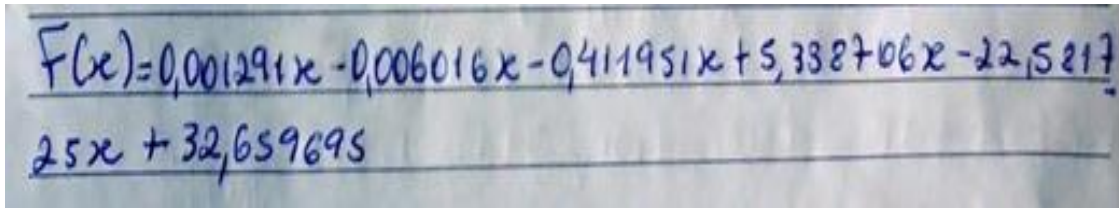 F(x)=0,001291x-0,006016x-0,411951x+5,338706x-22,5817
25x + 32,659695